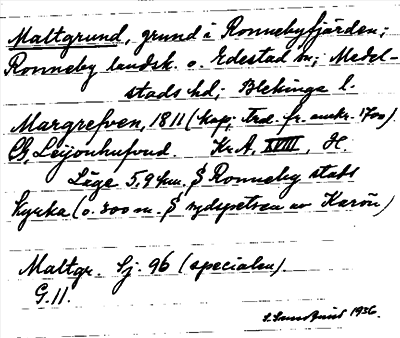 Maltgrund, grund i Ronnebyfjärden;
Ronneby landsk. o. Edestad sn; Medel-
stads hd; Blekinge l.
Margrefven, 1811 (kop; Trol. fr. omkr. 1700).
Cb, Leijonhufvud. Kr.A, XVIII, H.
Läge 5,9 km, S Ronneby stads
kyrka (o. 300 m. S sydspetsen av Karön)
Maltgr. Sj. 96 (specialen).
G.11.
1936.